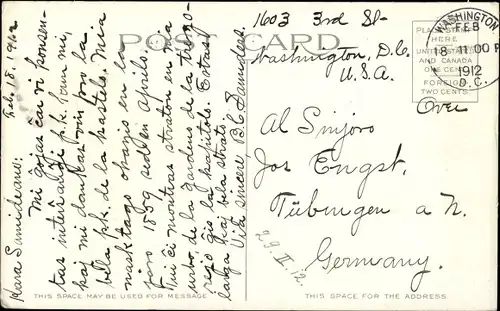 POST CARD
1603 3rd St-
Washington, D.C.
U.S.A.
Over
WASHINGTON
FEB
18-11 00 P
1912
D.C.
PLACE STAMP
HERE
UNITED STATES
AND CANADA
ONE CENT
FOREIGN
TWO CENTS
Feb. 18, 1912
Kara Samideano:
Mi ĝojas ĉar vi konsen-
tas interŝanĝi p.k. kun mi,
kaj mi dankas vin pro la
bela p.k. de la kastelo. Mia
nasktago okazis en la
jaro 1859 sed en Aprilo.
Tiu ĉi montras straton en
de la gardeno de la
ĝis la kapitolo. Estas
larĝa kaj bela strato.
Via sincere B.C. Saunders.
Al Sinjoro
Jos Engst,
Tübingen a N.
Germany.
29 II 12
THIS SPACE MAY BE USED FOR MESSAGE
THIS SPACE FOR THE ADDRESS